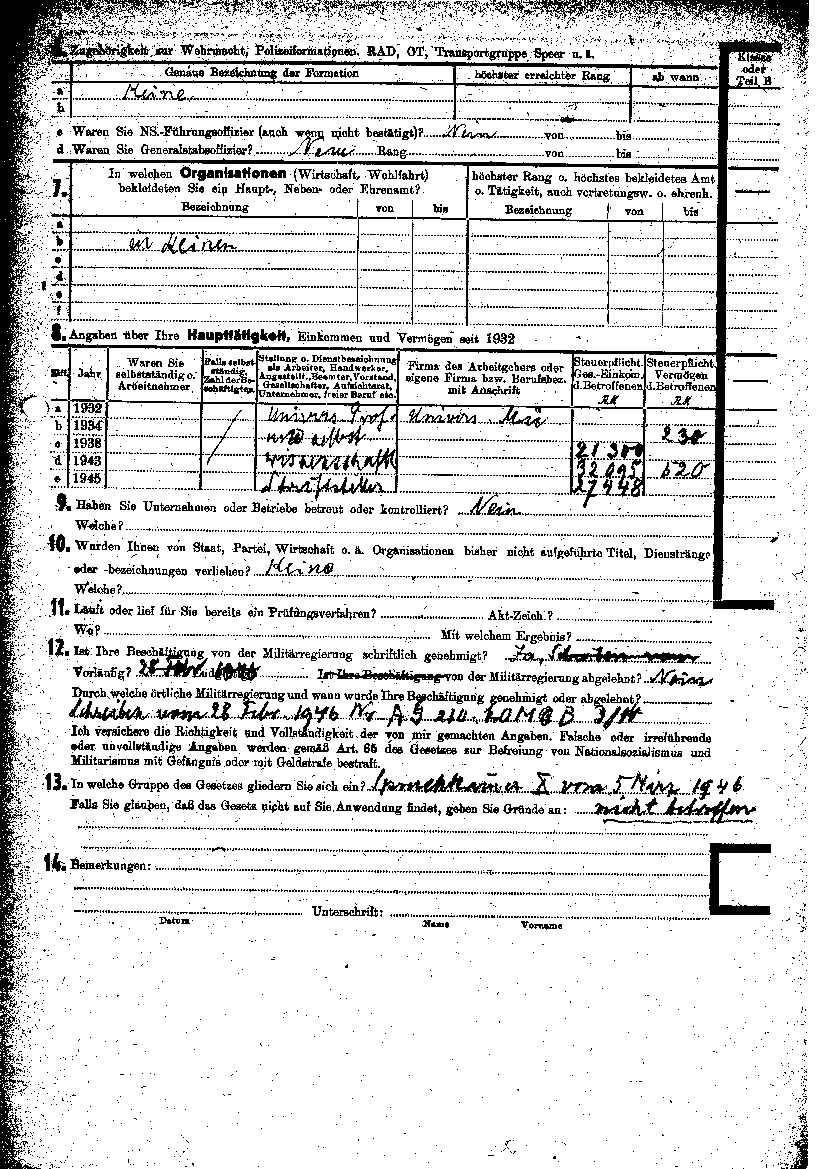 Zugehörigkeit zur Wehrmacht, Polizeiformationen, RAD, OT, Transportgruppe Speer u. ä.
Klasse oder Teil B
Genaue Bezeichnung der Formation höchster erreichter Rang ab wann
a Keine
b
c Waren Sie NS.-Führungsoffizier (auch wenn nicht bestätigt)? Nein von bis
d Waren Sie Generalstabsoffizier? Nein Rang von bis
7. In welchen Organisationen (Wirtschaft, Wohlfahrt) bekleideten Sie ein Haupt-, Neben- oder Ehrenamt?
höchster Rang o. höchstes bekleidetes Amt o. Tätigkeit, auch vertretungsw. o. ehrenh.
Bezeichnung von bis Bezeichnung von bis
a
b in keinen
c
d
e
f
8. Angaben über Ihre Haupttätigkeit, Einkommen und Vermögen seit 1932
Jahr
Waren Sie selbstständig o. Arbeitnehmer
Falls selbstständig, Zahl der Beschäftigten
Stellung o. Dienstbezeichnung als Arbeiter, Handwerker, Angestellt., Beamter, Vorstand, Gesellschafter, Aufsichtsrat, Unternehmer, freier Beruf etc.
Firma des Arbeitgebers oder eigene Firma bzw. Berufsbez. mit Anschrift
Steuerpflicht. Ges.-Einkom. d. Betroffenen RM
Steuerpflicht. Vermögen d. Betroffenen RM
a 1932 Univers Prof. Univers
b 1934 und selbst 230
c 1938 21 300
d 1943 wissenschaftl 32 095 520
e 1945 Schriftsteller 27 448
9. Haben Sie Unternehmen oder Betriebe betreut oder kontrolliert? Nein
Welche?
10. Wurden Ihnen von Staat, Partei, Wirtschaft o. ä. Organisationen bisher nicht aufgeführte Titel, Dienstränge
oder -bezeichnungen verliehen? Keine
Welche?
11. Läuft oder lief für Sie bereits ein Prüfungsverfahren? Akt-Zeich.?
Wo? Mit welchem Ergebnis?
12. Ist Ihre Beschäftigung von der Militärregierung schriftlich genehmigt? Ja, Schreiben vom
Vorläufig? 28 Febr Ist Ihre Beschäftigung von der Militärregierung abgelehnt? Nein
Durch welche örtliche Militärregierung und wann wurde Ihre Beschäftigung genehmigt oder abgelehnt?
Schreiben vom 28 Febr. 1946 Nr A G
Ich versichere die Richtigkeit und Vollständigkeit der von mir gemachten Angaben. Falsche oder irreführende
oder unvollständige Angaben werden gemäß Art. 65 des Gesetzes zur Befreiung von Nationalsozialismus und
Militarismus mit Gefängnis oder mit Geldstrafe bestraft.
13. In welche Gruppe des Gesetzes gliedern Sie sich ein? Spruchkammer X vom 5 März 1946
Falls Sie glauben, daß das Gesetz nicht auf Sie Anwendung findet, geben Sie Gründe an: nicht betroffen
14. Bemerkungen:
Unterschrift:
Datum Name Vorname